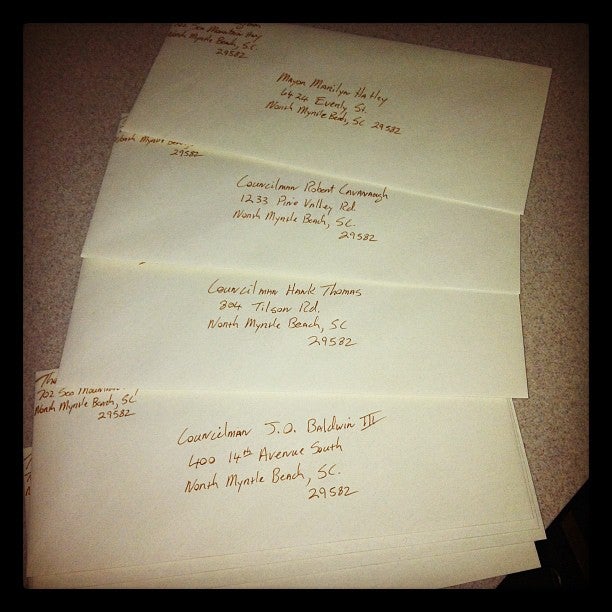 702 Sea Mountain Hwy
North Myrtle Beach, S.C.
29582
Mayor Marilyn Hatley
6424 Evenly St.
North Myrtle Beach, SC 29582
North Myrtle Beach,
29582
Councilman Robert Cavanaugh
1233 Pine Valley Rd
North Myrtle Beach, SC.
29582
Councilman Hank Thomas
804 Tilson Rd.
North Myrtle Beach, SC
29582
The
702 Sea Mountain
North Myrtle Beach, SC
29582
Councilman J.O. Baldwin III
400 14th Avenue South
North Myrtle Beach, SC.
29582